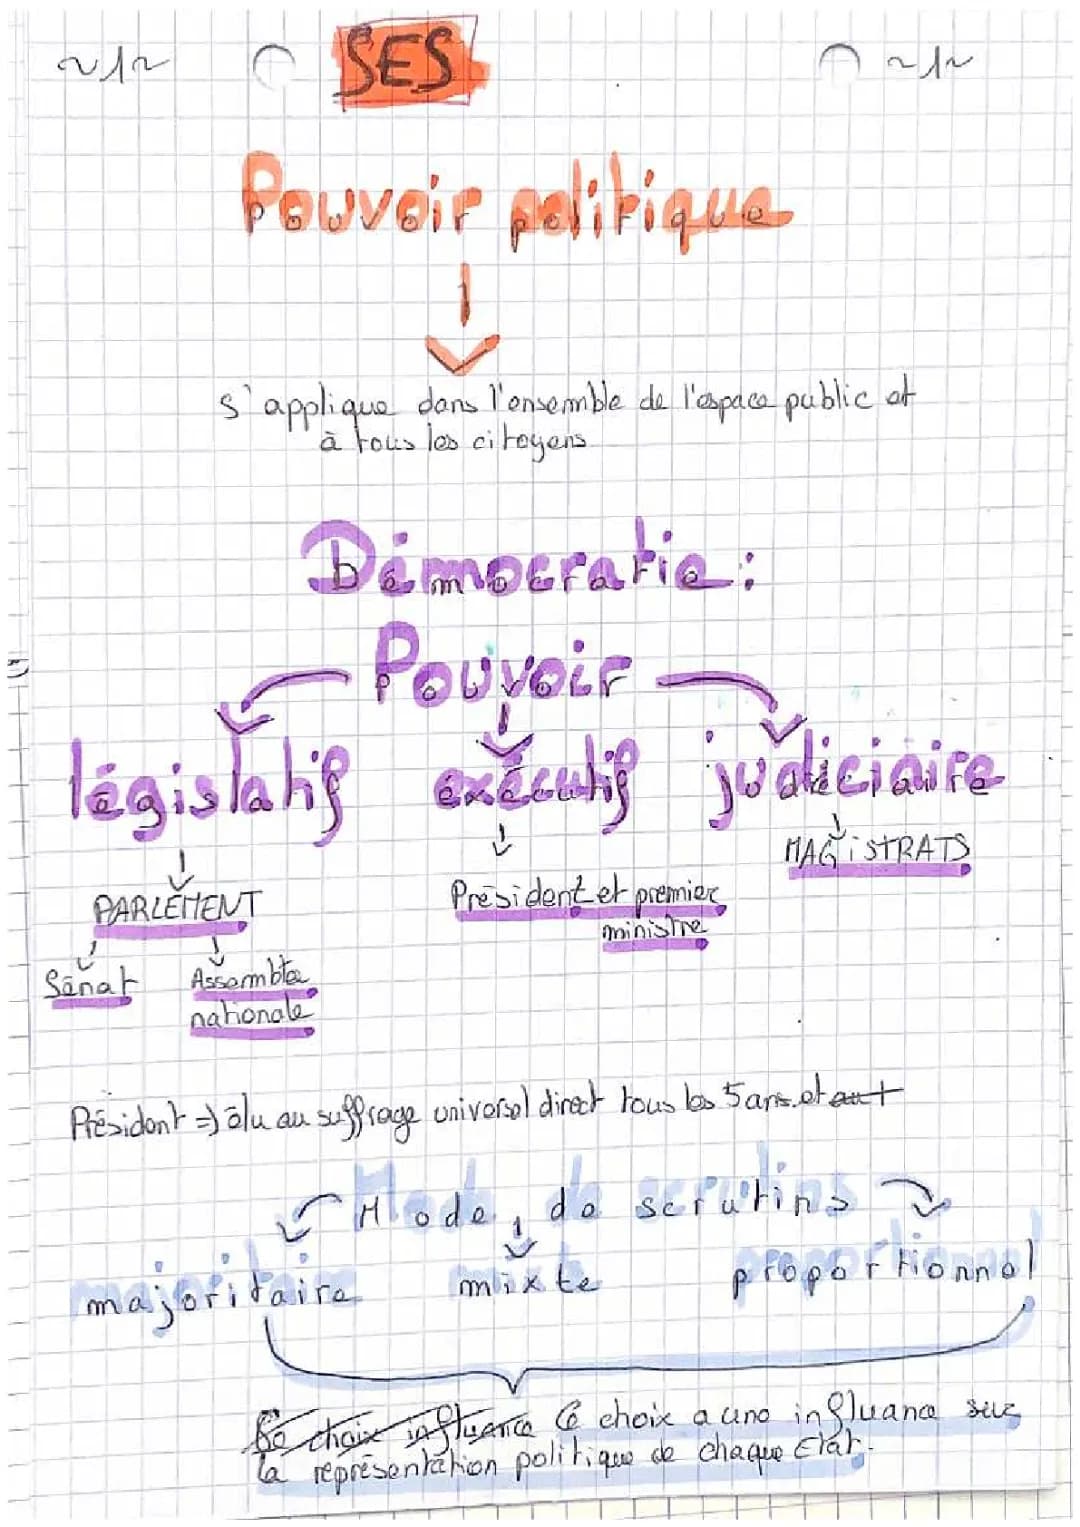 ~1~ SES ~1~
Pouvoir politique
s'applique dans l'ensemble de l'espace public et
à tous les citoyens
Démocratie :
Pouvoir
législatif exécutif judiciaire
MAGISTRATS
PARLEMENT Président et premier
ministre
Sénat Assemblée
nationale
Président => élu au suffrage universel direct tous les 5 ans. et aut
Mode de scrutins
majoritaire mixte proportionnel
Ce choix influence Ce choix a une influence sur
la représentation politique de chaque Etat.